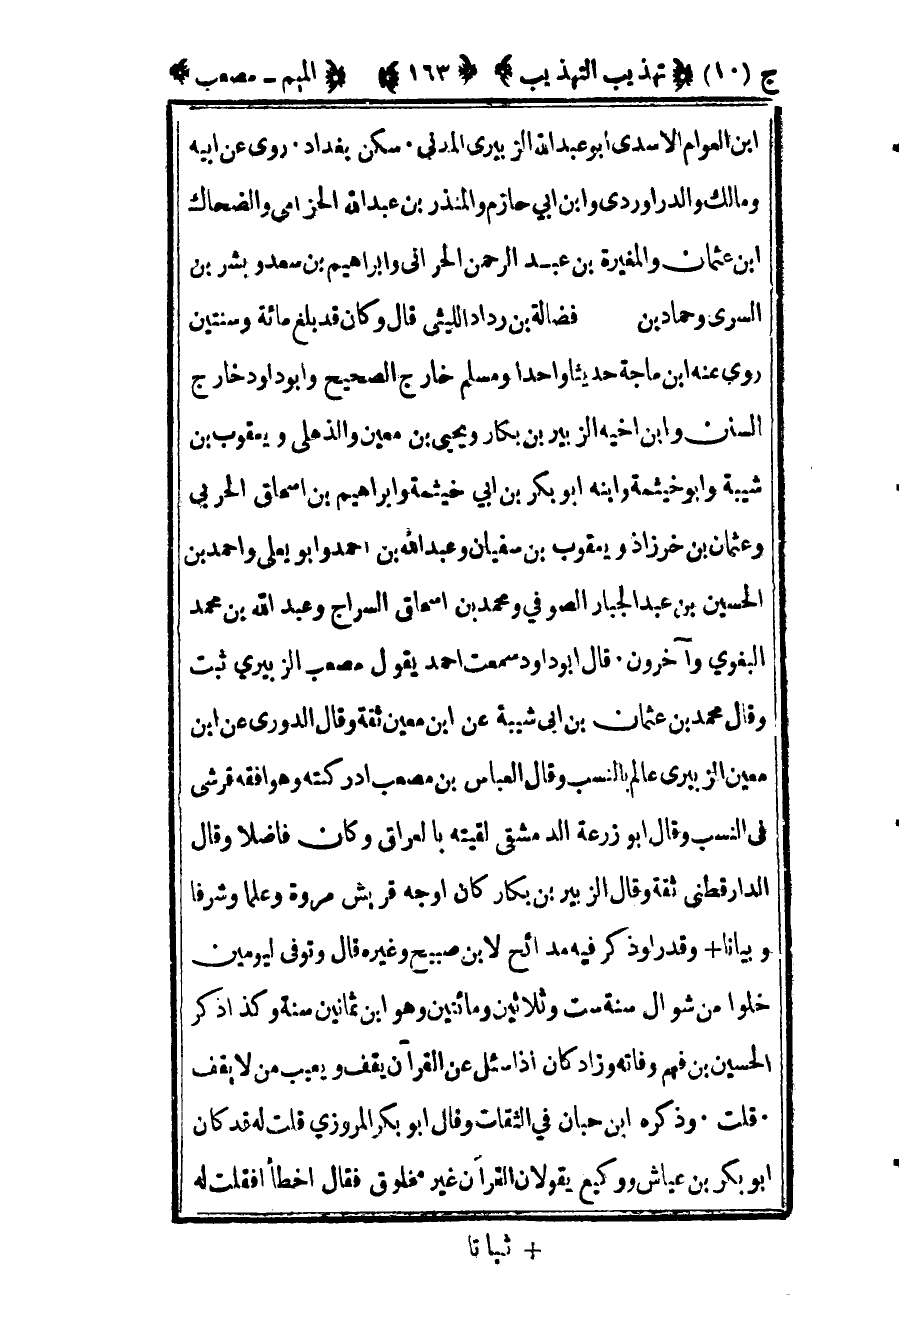 ج (١٠) ﴿ تهذيب التهذيب ﴾ ﴿ ١٦٣ ﴾ ﴿ الميم ـ مصعب ﴾
ابن العوام الاسدى ابو عبد الله الزبيرى المدني ٠ سكن بغداد ٠ روى عن ابيه
ومالك والدراوردى وابن ابي حازم والمنذر بن عبد الله الحزامى والضحاك
ابن عثمان والمغيرة بن عبد الرحمن الحرانى وابراهيم بن سعد وبشر بن
السرى وحماد بن فضالة بن رداد الليثى قال وكان قد بلغ مائة وسنتين
روى عنه ابن ماجة حديثا واحدا ومسلم خارج الصحيح وابو داود خارج
السنن وابن اخيه الزبير بن بكار ويحيى بن معين والذهلى ويعقوب بن
شيبة وابو خيثمة وابنه ابو بكر بن ابي خيثمة وابراهيم بن اسحاق الحربي
وعثمان بن خرزاذ ويعقوب بن سفيان وعبد الله بن احمد وابو يعلى واحمد بن
الحسين بن عبد الجبار الصوفي ومحمد بن اسحاق السراج وعبد الله بن محمد
البغوي وآخرون ٠ قال ابو داود سمعت احمد يقول مصعب الزبيري ثبت
وقال محمد بن عثمان بن ابى شيبة عن ابن معين ثقة وقال الدورى عن ابن
معين الزبيرى عالم بالنسب وقال العباس بن مصعب ادركته وهو افقه قرشى
فى النسب وقال ابو زرعة الدمشقى لقيته بالعراق وكان فاضلا وقال
الدارقطنى ثقة وقال الزبير بن بكار كان اوجه قريش مروة وعلما وشرفا
وبيانا+ وقدرا وذكر فيه مدائح لابن صبيح وغيره قال وتوفى ليومين
خلوا من شوال سنة ست وثلاثين ومائتين وهو ابن ثمانين سنة وكذا ذكر
الحسين بن فهم وفاته وزاد كان اذا سئل عن القرآن يقف ويعيب من لا يقف
٠ قلت ٠ وذكره ابن حبان في الثقات وقال ابو بكر المروزي قلت له قد كان
ابو بكر بن عياش ووكيع يقولان القرآن غير مخلوق فقال اخطأا فقلت له
+ ثباتا